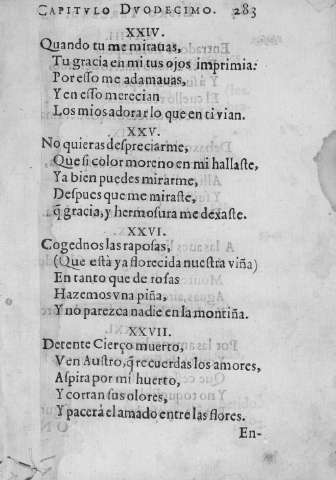 CAPITVLO DVODECIMO. 283
XXIV.
Quando tu me mirauas,
Tu gracia en mi tus ojos imprimia:
Por eſſo me adamauas,
Y en eſſo merecian
Los mios adorar lo que en ti vian.
XXV.
No quieras deſpreciarme,
Que ſi color moreno en mi hallaſte,
Ya bien puedes mirarme,
Deſpues que me miraſte,
q̃ gracia, y hermoſura me dexaſte.
XXVI.
Cogednos las rapoſas,
(Que està ya florecida nueſtra viña)
En tanto que de roſas
Hazemos vna piña,
Y no parezca nadie en la montiña.
XXVII.
Detente Cierço muerto,
Ven Auſtro, q̃ recuerdas los amores,
Aſpira por mi huerto,
Y corran ſus olores,
Y pacerà el amado entre las flores.
En-